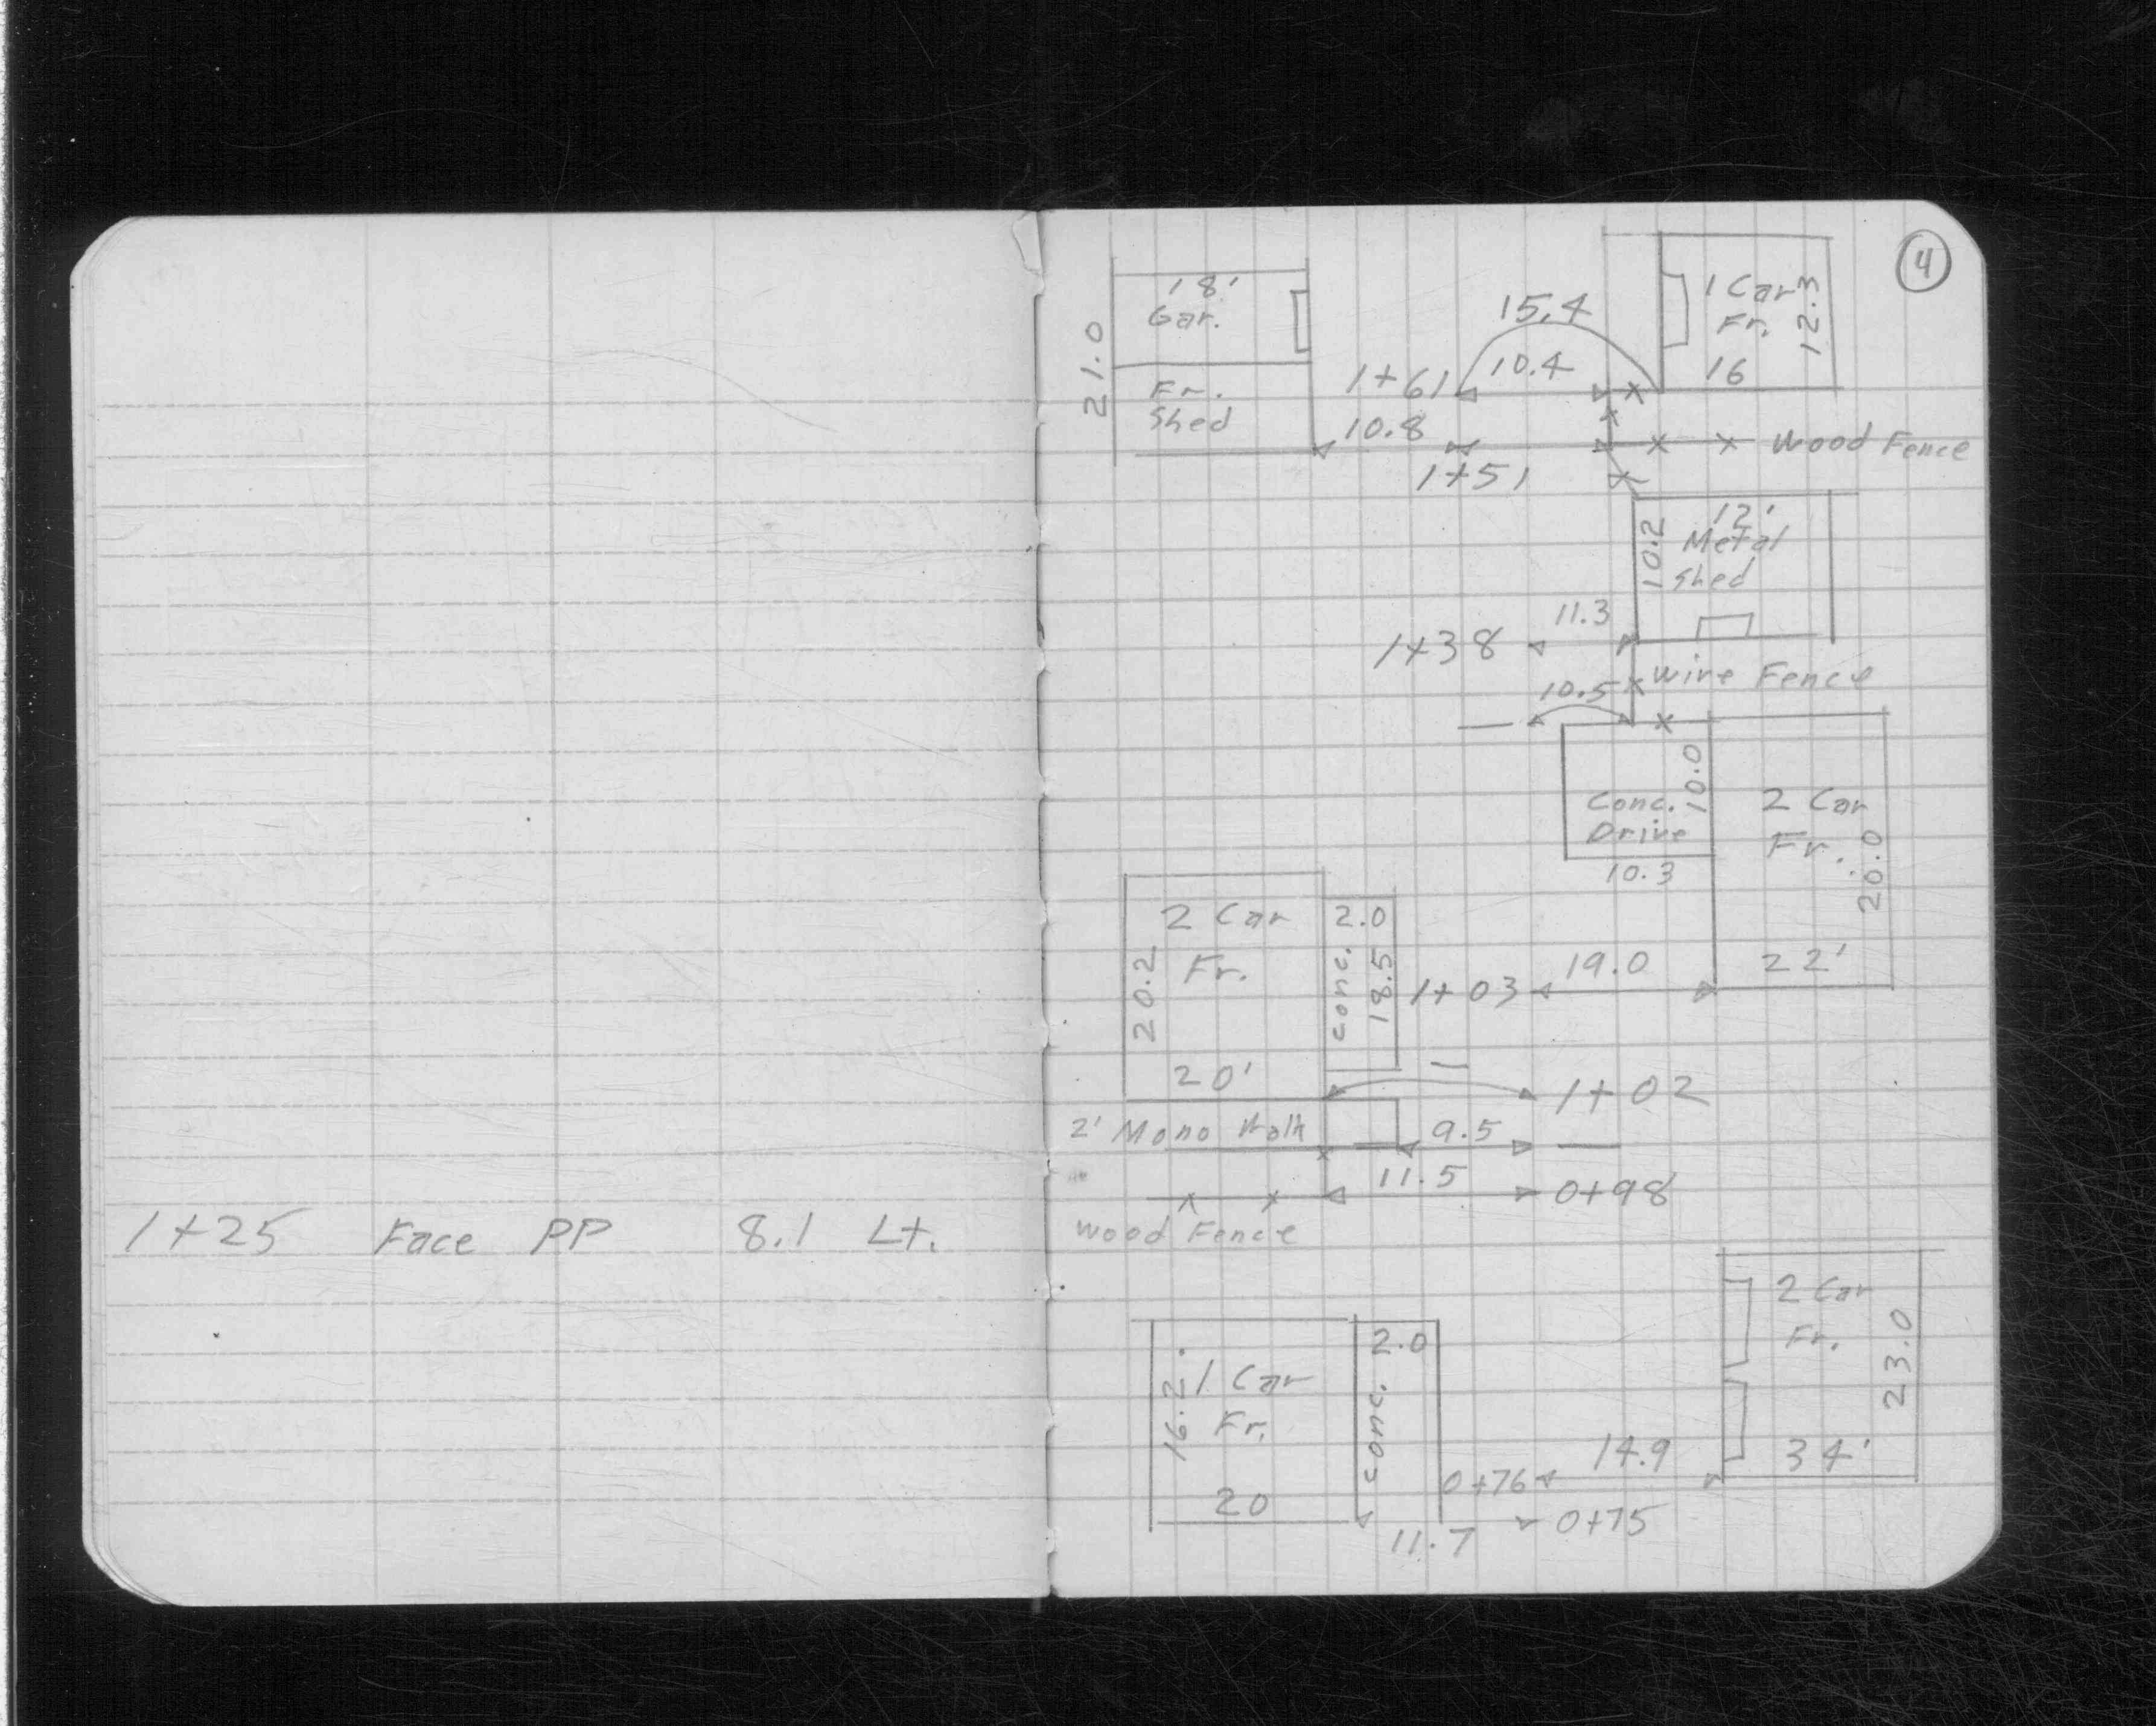 1+25 Face PP 8.1 Lt.
4
18'
Gar.
21.0
Fr.
Shed
15.4
1 Car
Fr.
12.3
16
1+61
10.4
10.8
1+51
Wood Fence
12'
Metal
Shed
10.2
11.3
1+38
10.5
Wire Fence
10.0
Conc.
Drive
10.3
2 Car
Fr.
20.0
22'
2 Car
Fr.
20.2
20'
2.0
conc.
18.5
1+03
19.0
1+02
2' Mono Walk
9.5
11.5
0+98
Wood Fence
2 Car
Fr.
23.0
34'
16.2
1 Car
Fr.
20
2.0
conc.
14.9
0+76
0+75
11.7